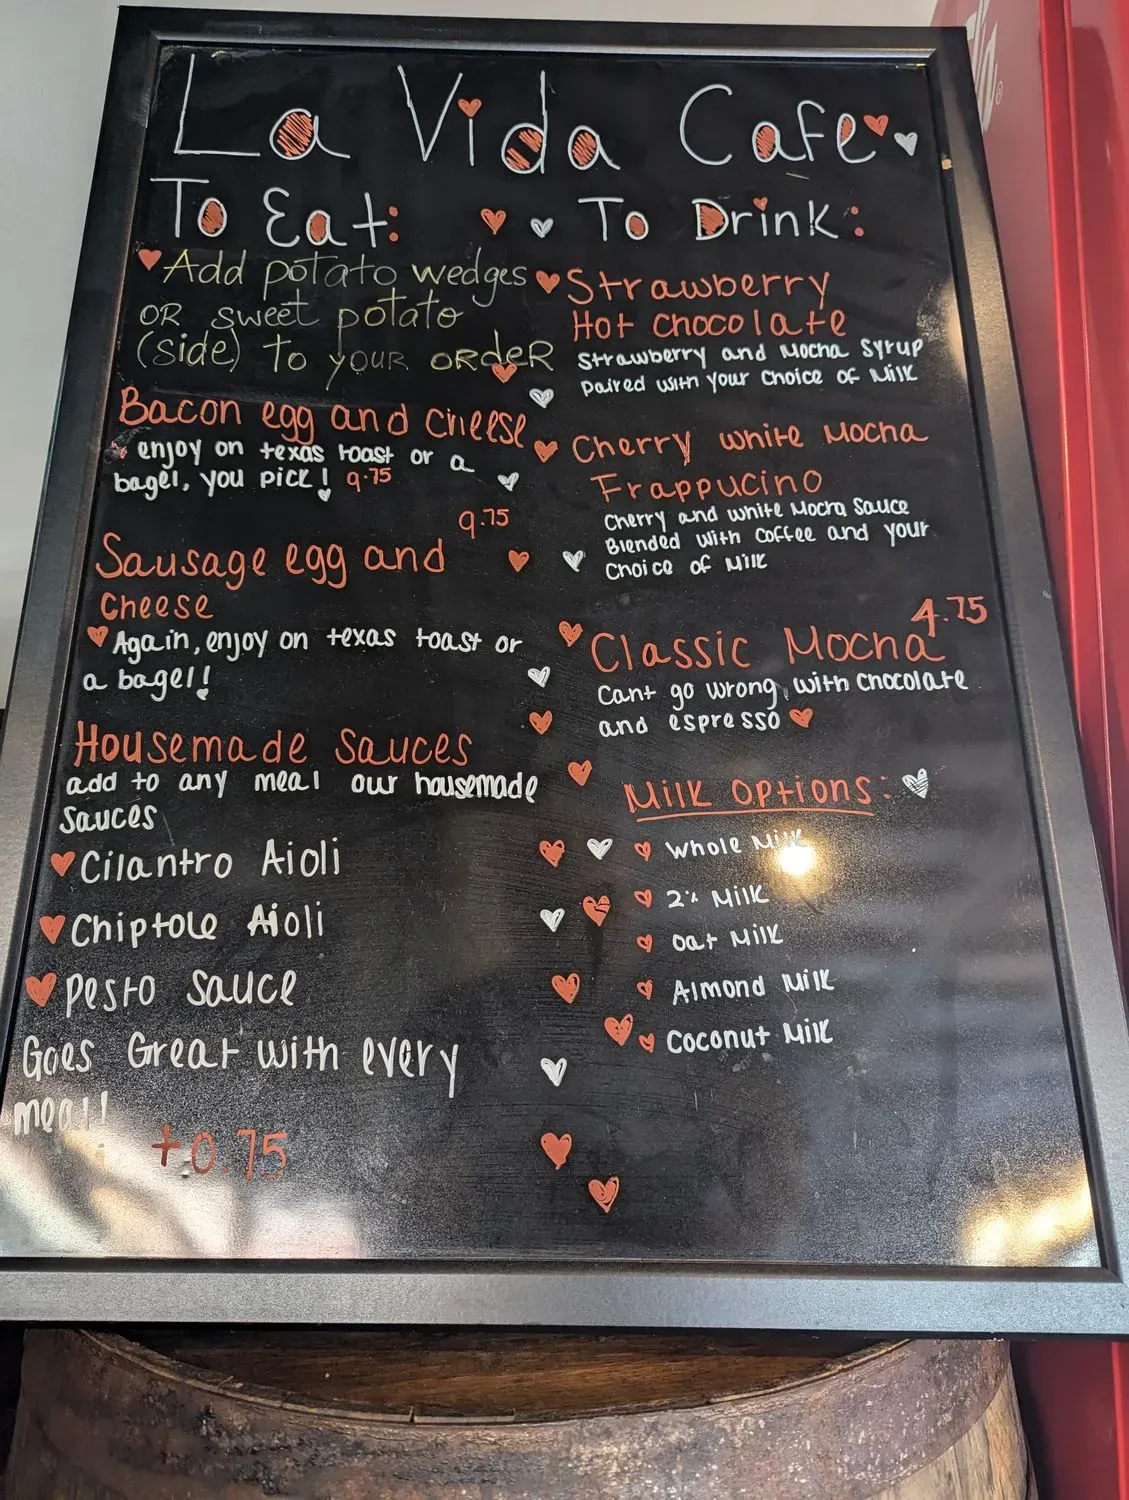 La Vida Cafe
To Eat:
Add potato wedges
OR sweet potato
(side) To your ORdeR
Bacon egg and cheese
enjoy on texas toast or a
bagel, you pick! 9.75
9.75
Sausage egg and
cheese
Again, enjoy on texas toast or
a bagel!
Housemade sauces
add to any meal our housemade
sauces
Cilantro Aioli
Chiptole Aioli
Pesto sauce
Goes Great with every
meal!
+0.75
To Drink:
Strawberry
Hot chocolate
Strawberry and Mocha Syrup
paired with your choice of Milk
Cherry white Mocha
Frappucino
Cherry and white Mocha Sauce
Blended with coffee and your
Choice of Milk
4.75
Classic Mocha
Cant go wrong with chocolate
and espresso
Milk options:
Whole Milk
2% Milk
Oat Milk
Almond Milk
Coconut Milk